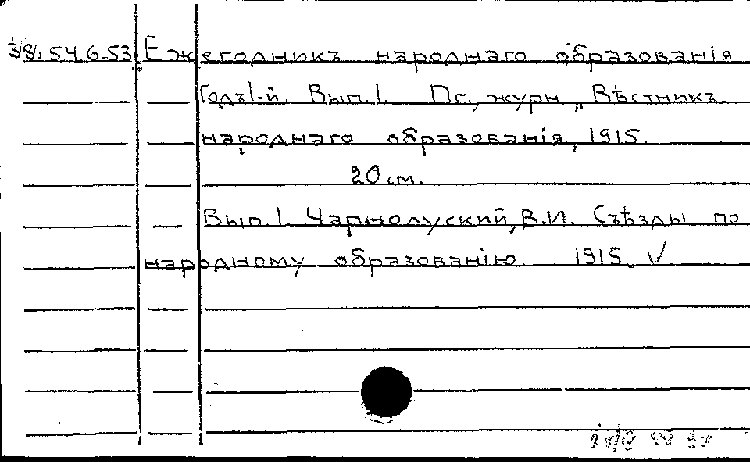 38.54.6.53 Ежегодникъ народнаго образованія
Годъ I-й. Вып. I. Пг., журн. „Вѣстникъ
народнаго образованія, 1915.
20 см.
Вып. I. Чарнолуский, В.И. Съѣзды по
народному образованію 1915. √